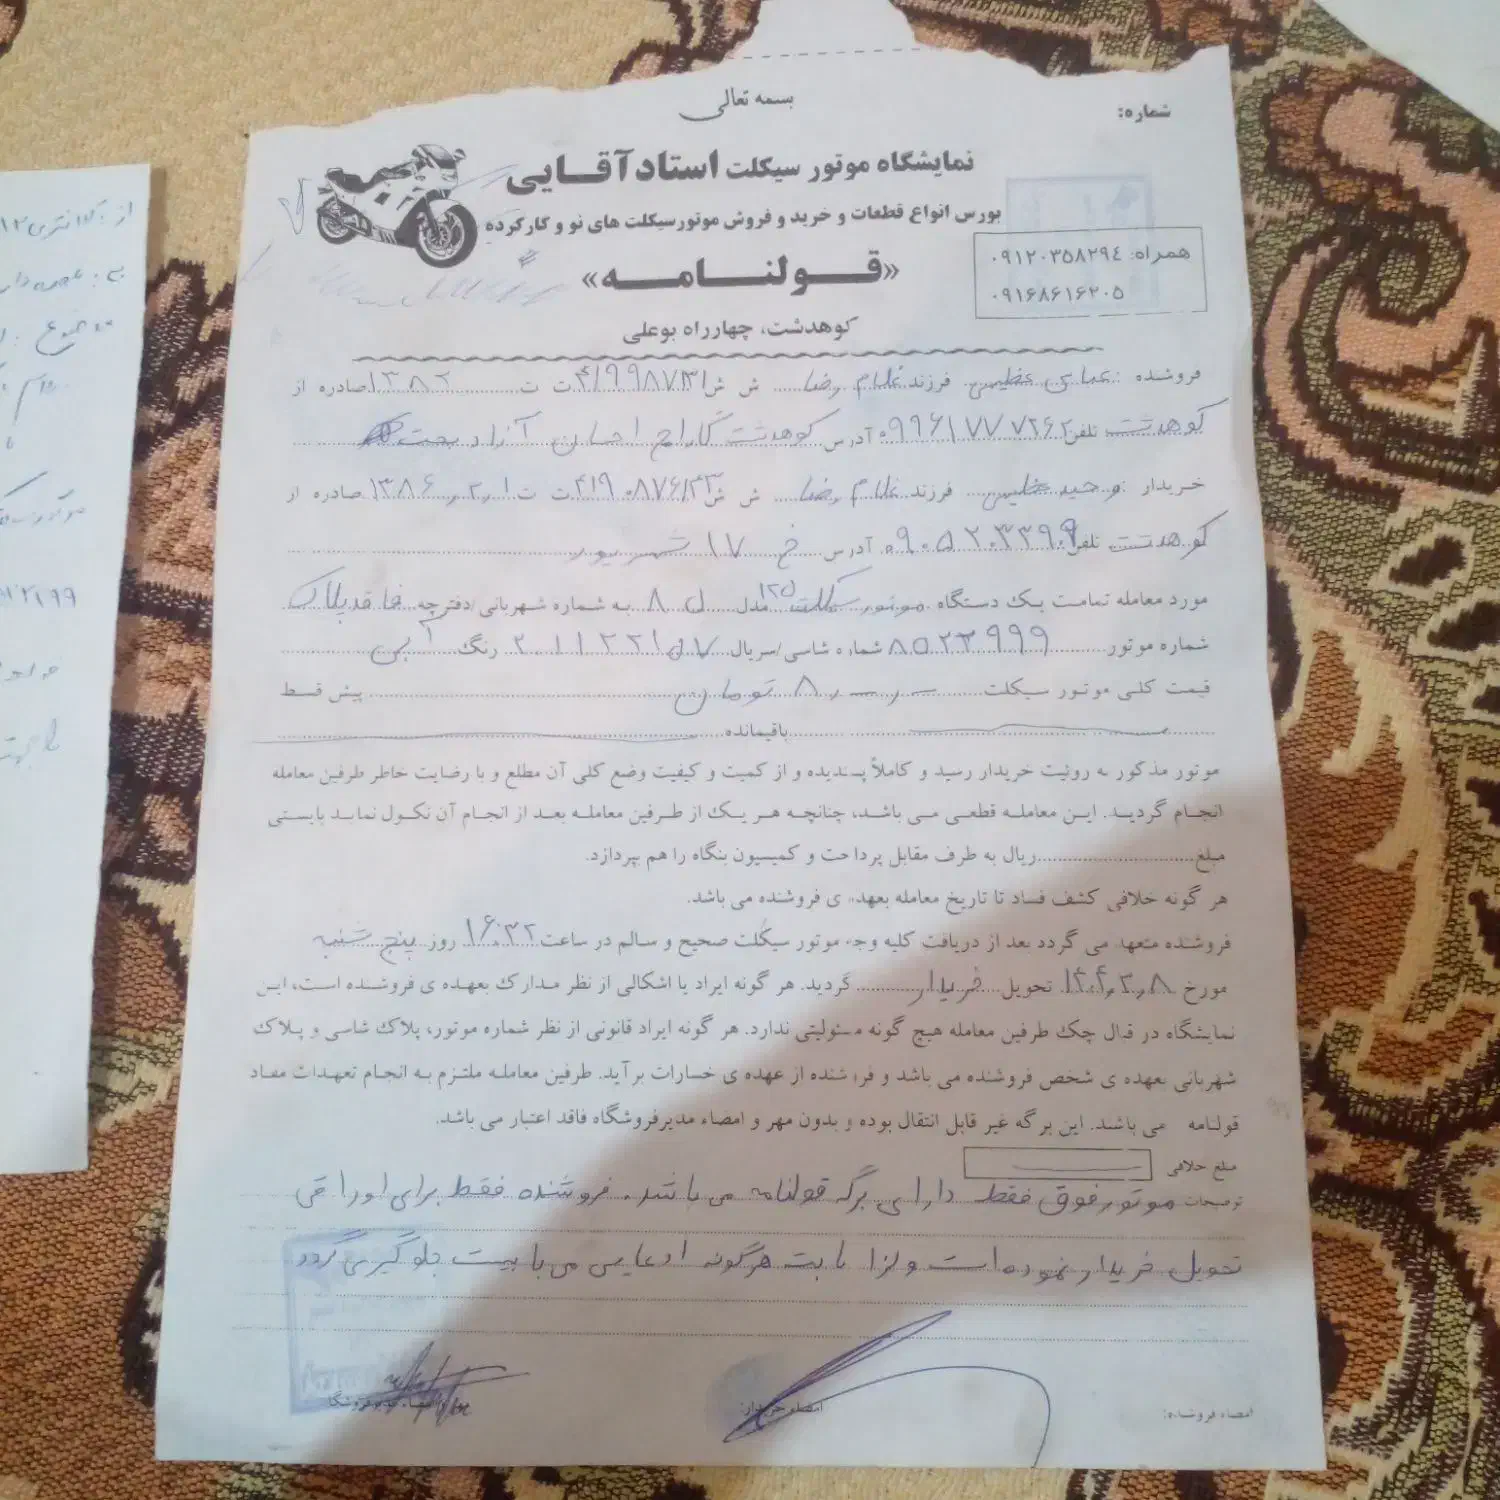 بسمه تعالی
شماره:
نمایشگاه موتور سیکلت استاد آقایی
بورس انواع قطعات و خرید و فروش موتورسیکلت های نو و کارکرده
همراه: ۰۹۱۲۰۳۵۸۲۹۴
۰۹۱۶۸۶۱۶۲۰۵
«قولنامه»
کوهدشت، چهارراه بوعلی
فروشنده عباس عظیمی فرزند غلام رضا ش ش ت ت ۱۳۸۲ صادره از
کوهدشت تلفن ۰۹۹۶۱۷۷۷۲۶۲ آدرس کوهدشت گاراج احسان آزاد بخت
خریدار وحید فرزند غلام رضا ش ش ت ت ۱۳۸۶,۲,۱ صادره از
کوهدشت تلفن آدرس خ ۱۷ شهریور
مورد معامله تمامت یک دستگاه موتور سیکلت ۱۲۵ مدل ۸۵ به شماره شهربانی/دفترچه فاقد پلاک
شماره موتور ۸۵۲۳۹۹۹ شماره شاسی/سریال رنگ آبی
قیمت کلی موتور سیکلت تومان پیش قسط
باقیمانده
موتور مذکور به روئیت خریدار رسید و کاملاً پسندیده و از کمیت و کیفیت وضع کلی آن مطلع و با رضایت خاطر طرفین معامله
انجام گردید. این معامله قطعی می باشد، چنانچه هر یک از طرفین معامله بعد از انجام آن نکول نماید بایستی
مبلغ ریال به طرف مقابل پرداخت و کمیسیون بنگاه را هم بپردازد.
هر گونه خلافی کشف فساد تا تاریخ معامله بعهده ی فروشنده می باشد.
فروشنده متعهد می گردد بعد از دریافت کلیه وجه موتور سیکلت صحیح و سالم در ساعت ۱۶:۳۲ روز پنج شنبه
مورخ ۱۴۰۴,۳,۸ تحویل خریدار گردید. هر گونه ایراد یا اشکالی از نظر مدارک بعهده ی فروشنده است، این
نمایشگاه در قبال چک طرفین معامله هیچ گونه مسئولیتی ندارد. هر گونه ایراد قانونی از نظر شماره موتور، پلاک شاسی و پلاک
شهربانی بعهده ی شخص فروشنده می باشد و فروشنده از عهده ی خسارات برآید. طرفین معامله ملتزم به انجام تعهدات مفاد
قولنامه می باشند. این برگه غیر قابل انتقال بوده و بدون مهر و امضاء مدیرفروشگاه فاقد اعتبار می باشد.
مبلغ خلافی
توضیحات موتور فوق فقط دارای برگه قولنامه می باشد. فروشنده فقط برای اوراقی
تحویل خریدار نموده است و لزا بابت هرگونه ادعایی می بایست جلوگیری گردد
امضاء فروشنده:
امضاء خریدار: